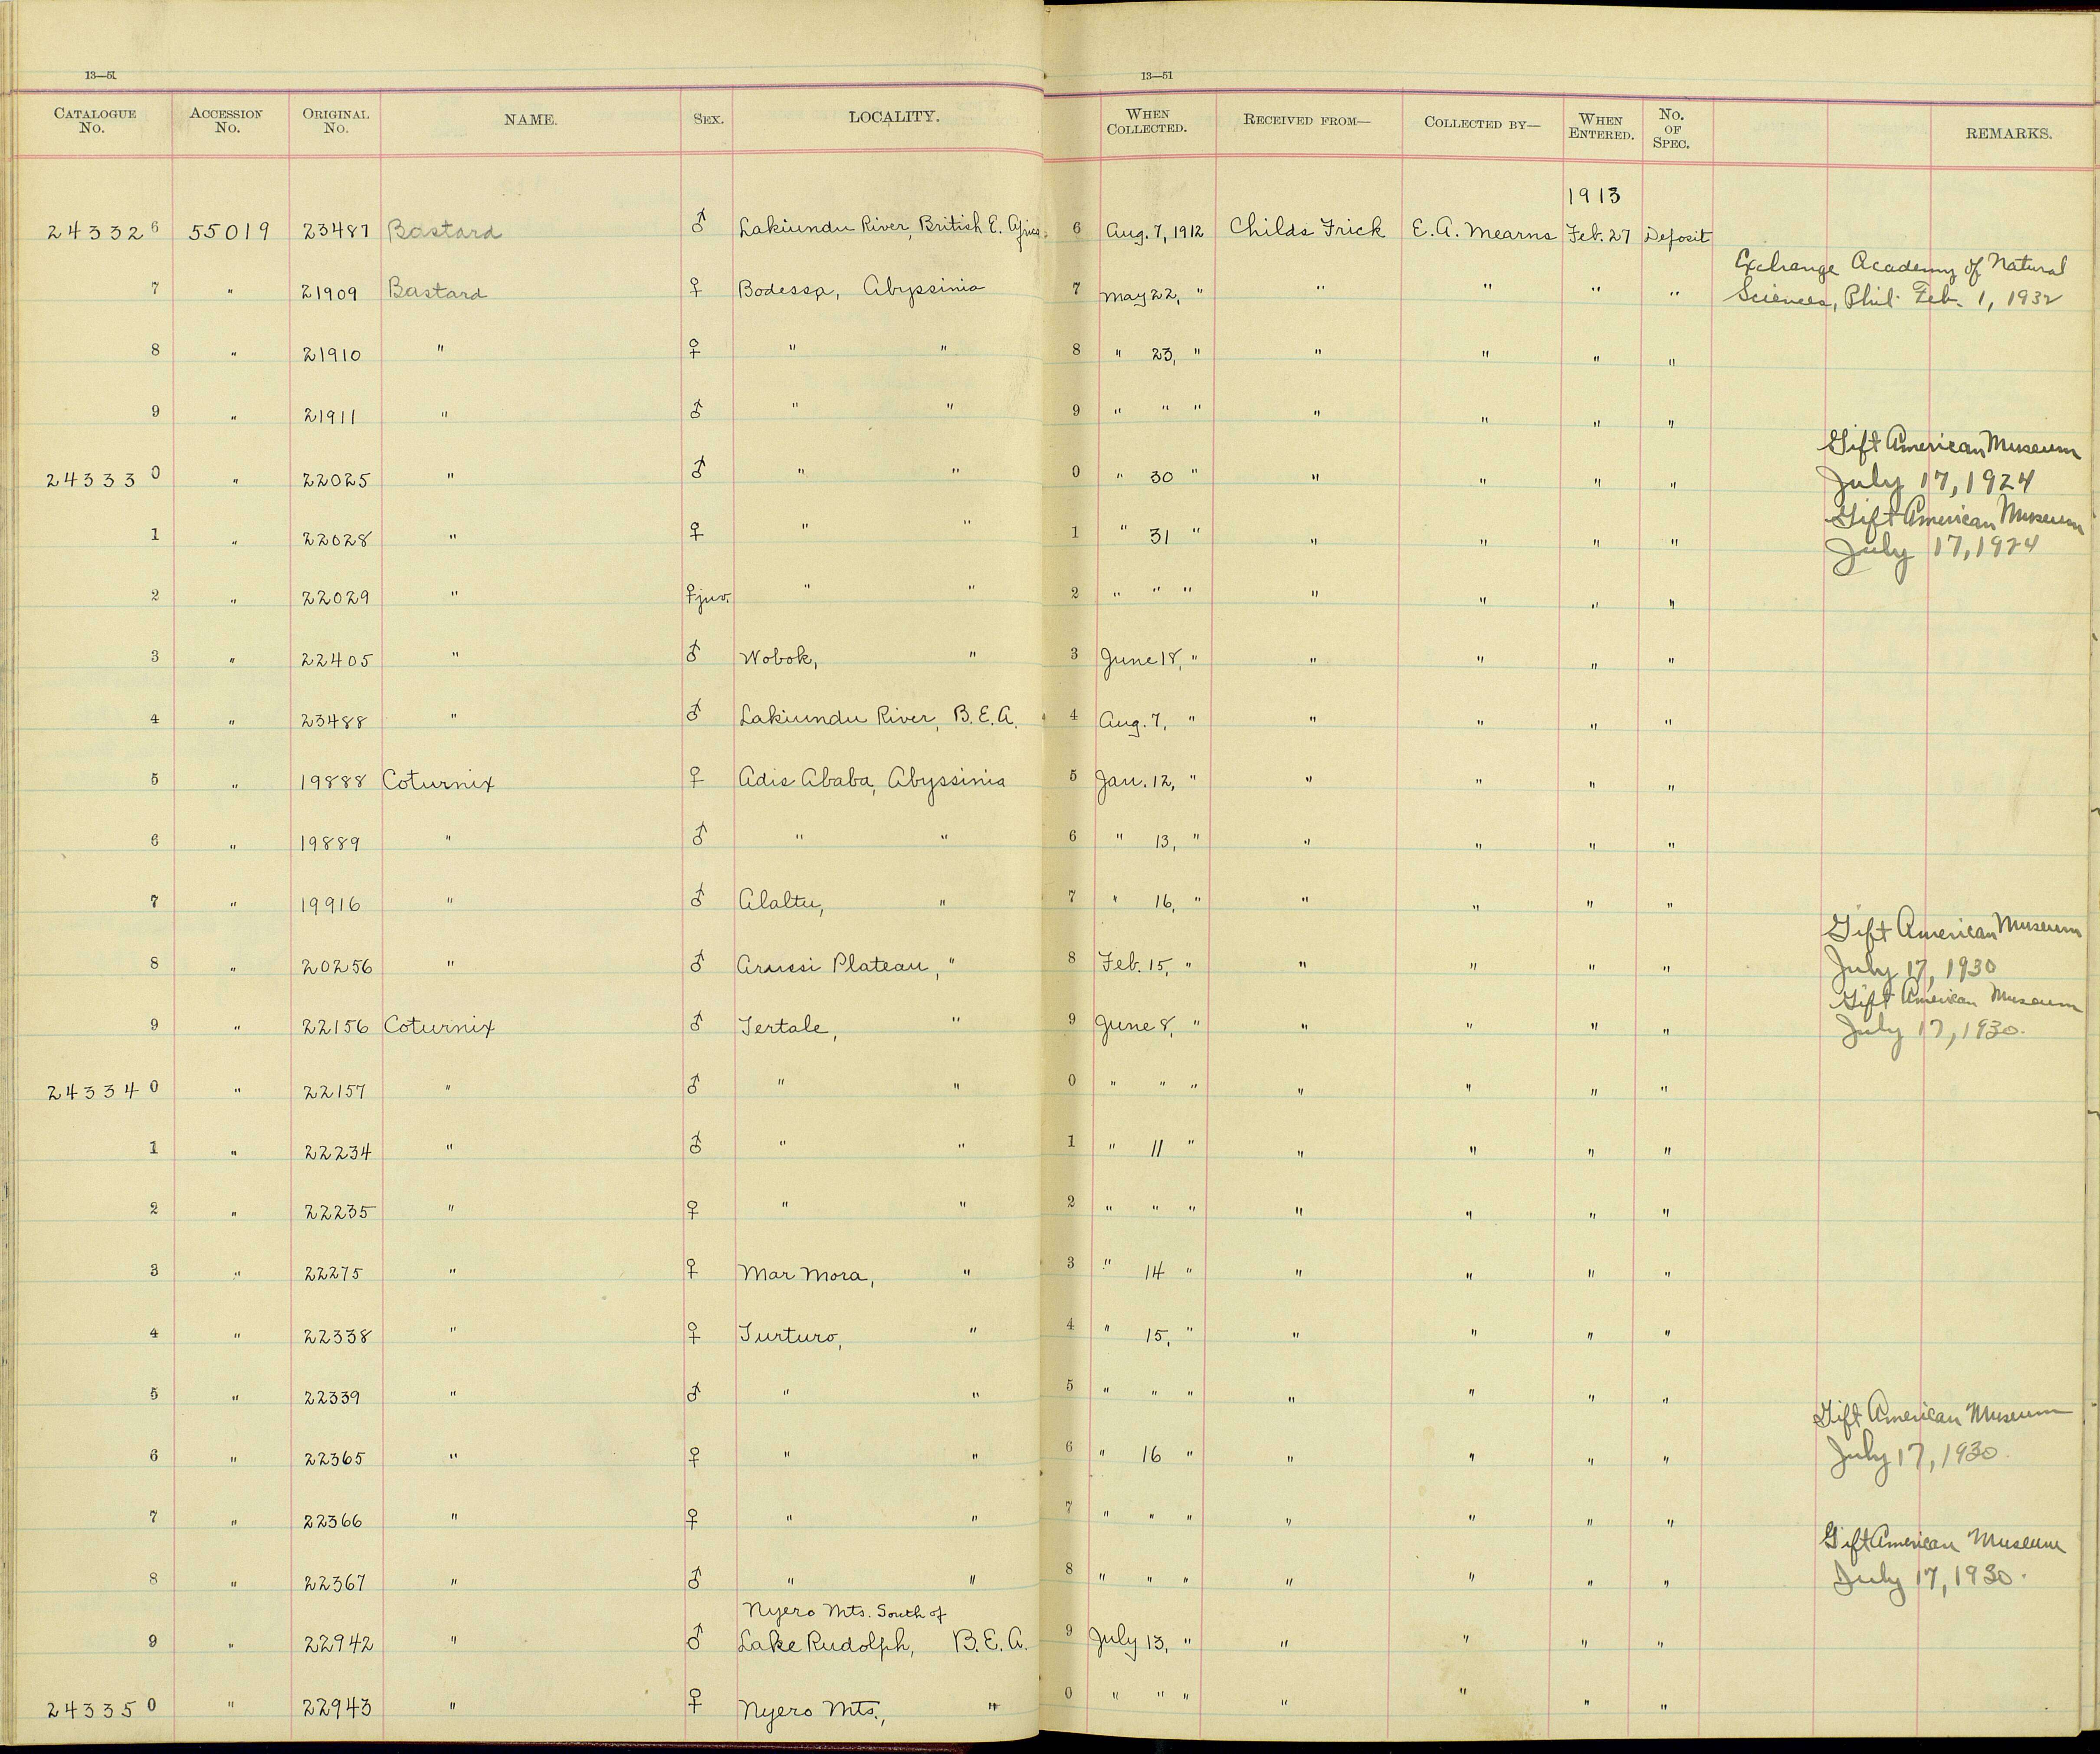 13—51 13—51
CATALOGUE No. ACCESSION No. ORIGINAL No. NAME. SEX. LOCALITY. WHEN COLLECTED. RECEIVED FROM— COLLECTED BY— WHEN ENTERED. No. OF SPEC. REMARKS.
1913
243326 55019 23487 Bastard ♂ Lakiundu River, British E. Africa. 6 Aug. 7, 1912 Childs Frick E. A. Mearns Feb. 27 Deposit
Exchange Academy of Natural
7 " 21909 Bastard ♀ Bodessa, Abyssinia 7 May 22, " " " " " Sciences, Phil. Feb. 1, 1932
8 " 21910 " ♀ " " 8 " 23, " " " " "
9 " 21911 " ♂ " " 9 " " " " " " "
Gift American Museum
243330 " 22025 " ♂ " " 0 " 30 " " " " " July 17, 1924
Gift American Museum
1 " 22028 " ♀ " " 1 " 31 " " " " " July 17, 1924
2 " 22029 " ♀ juv. " " 2 " " " " " " "
3 " 22405 " ♂ Wobok, " 3 June 18, " " " " "
4 " 23488 " ♂ Lakiundu River, B. E. A. 4 Aug. 7, " " " " "
5 " 19888 Coturnix ♀ Adis Ababa, Abyssinia 5 Jan. 12, " " " " "
6 " 19889 " ♂ " " 6 " 13, " " " " "
7 " 19916 " ♂ Alaltu, " 7 " 16, " " " " "
Gift American Museum
8 " 20256 " ♂ Arussi Plateau, " 8 Feb. 15, " " " " " July 17, 1930
Gift American Museum
9 " 22156 Coturnix ♂ Tertale, " 9 June 8, " " " " " July 17, 1930.
243340 " 22157 " ♂ " " 0 " " " " " " "
1 " 22234 " ♂ " " 1 " 11 " " " " "
2 " 22235 " ♀ " " 2 " " " " " " "
3 " 22275 " ♀ Mar Mora, " 3 " 14 " " " " "
4 " 22338 " ♀ Turturo, " 4 " 15, " " " " "
5 " 22339 " ♂ " " 5 " " " " " " "
Gift American Museum
6 " 22365 " ♀ " " 6 " 16 " " " " " July 17, 1930.
7 " 22366 " ♀ " " 7 " " " " " " "
Gift American Museum
8 " 22367 " ♂ " " 8 " " " " " " " July 17, 1930.
Nyero Mts. South of
9 " 22942 " ♂ Lake Rudolph, B. E. A. 9 July 13, " " " " "
243350 " 22943 " ♀ Nyero Mts., " 0 " " " " " " "